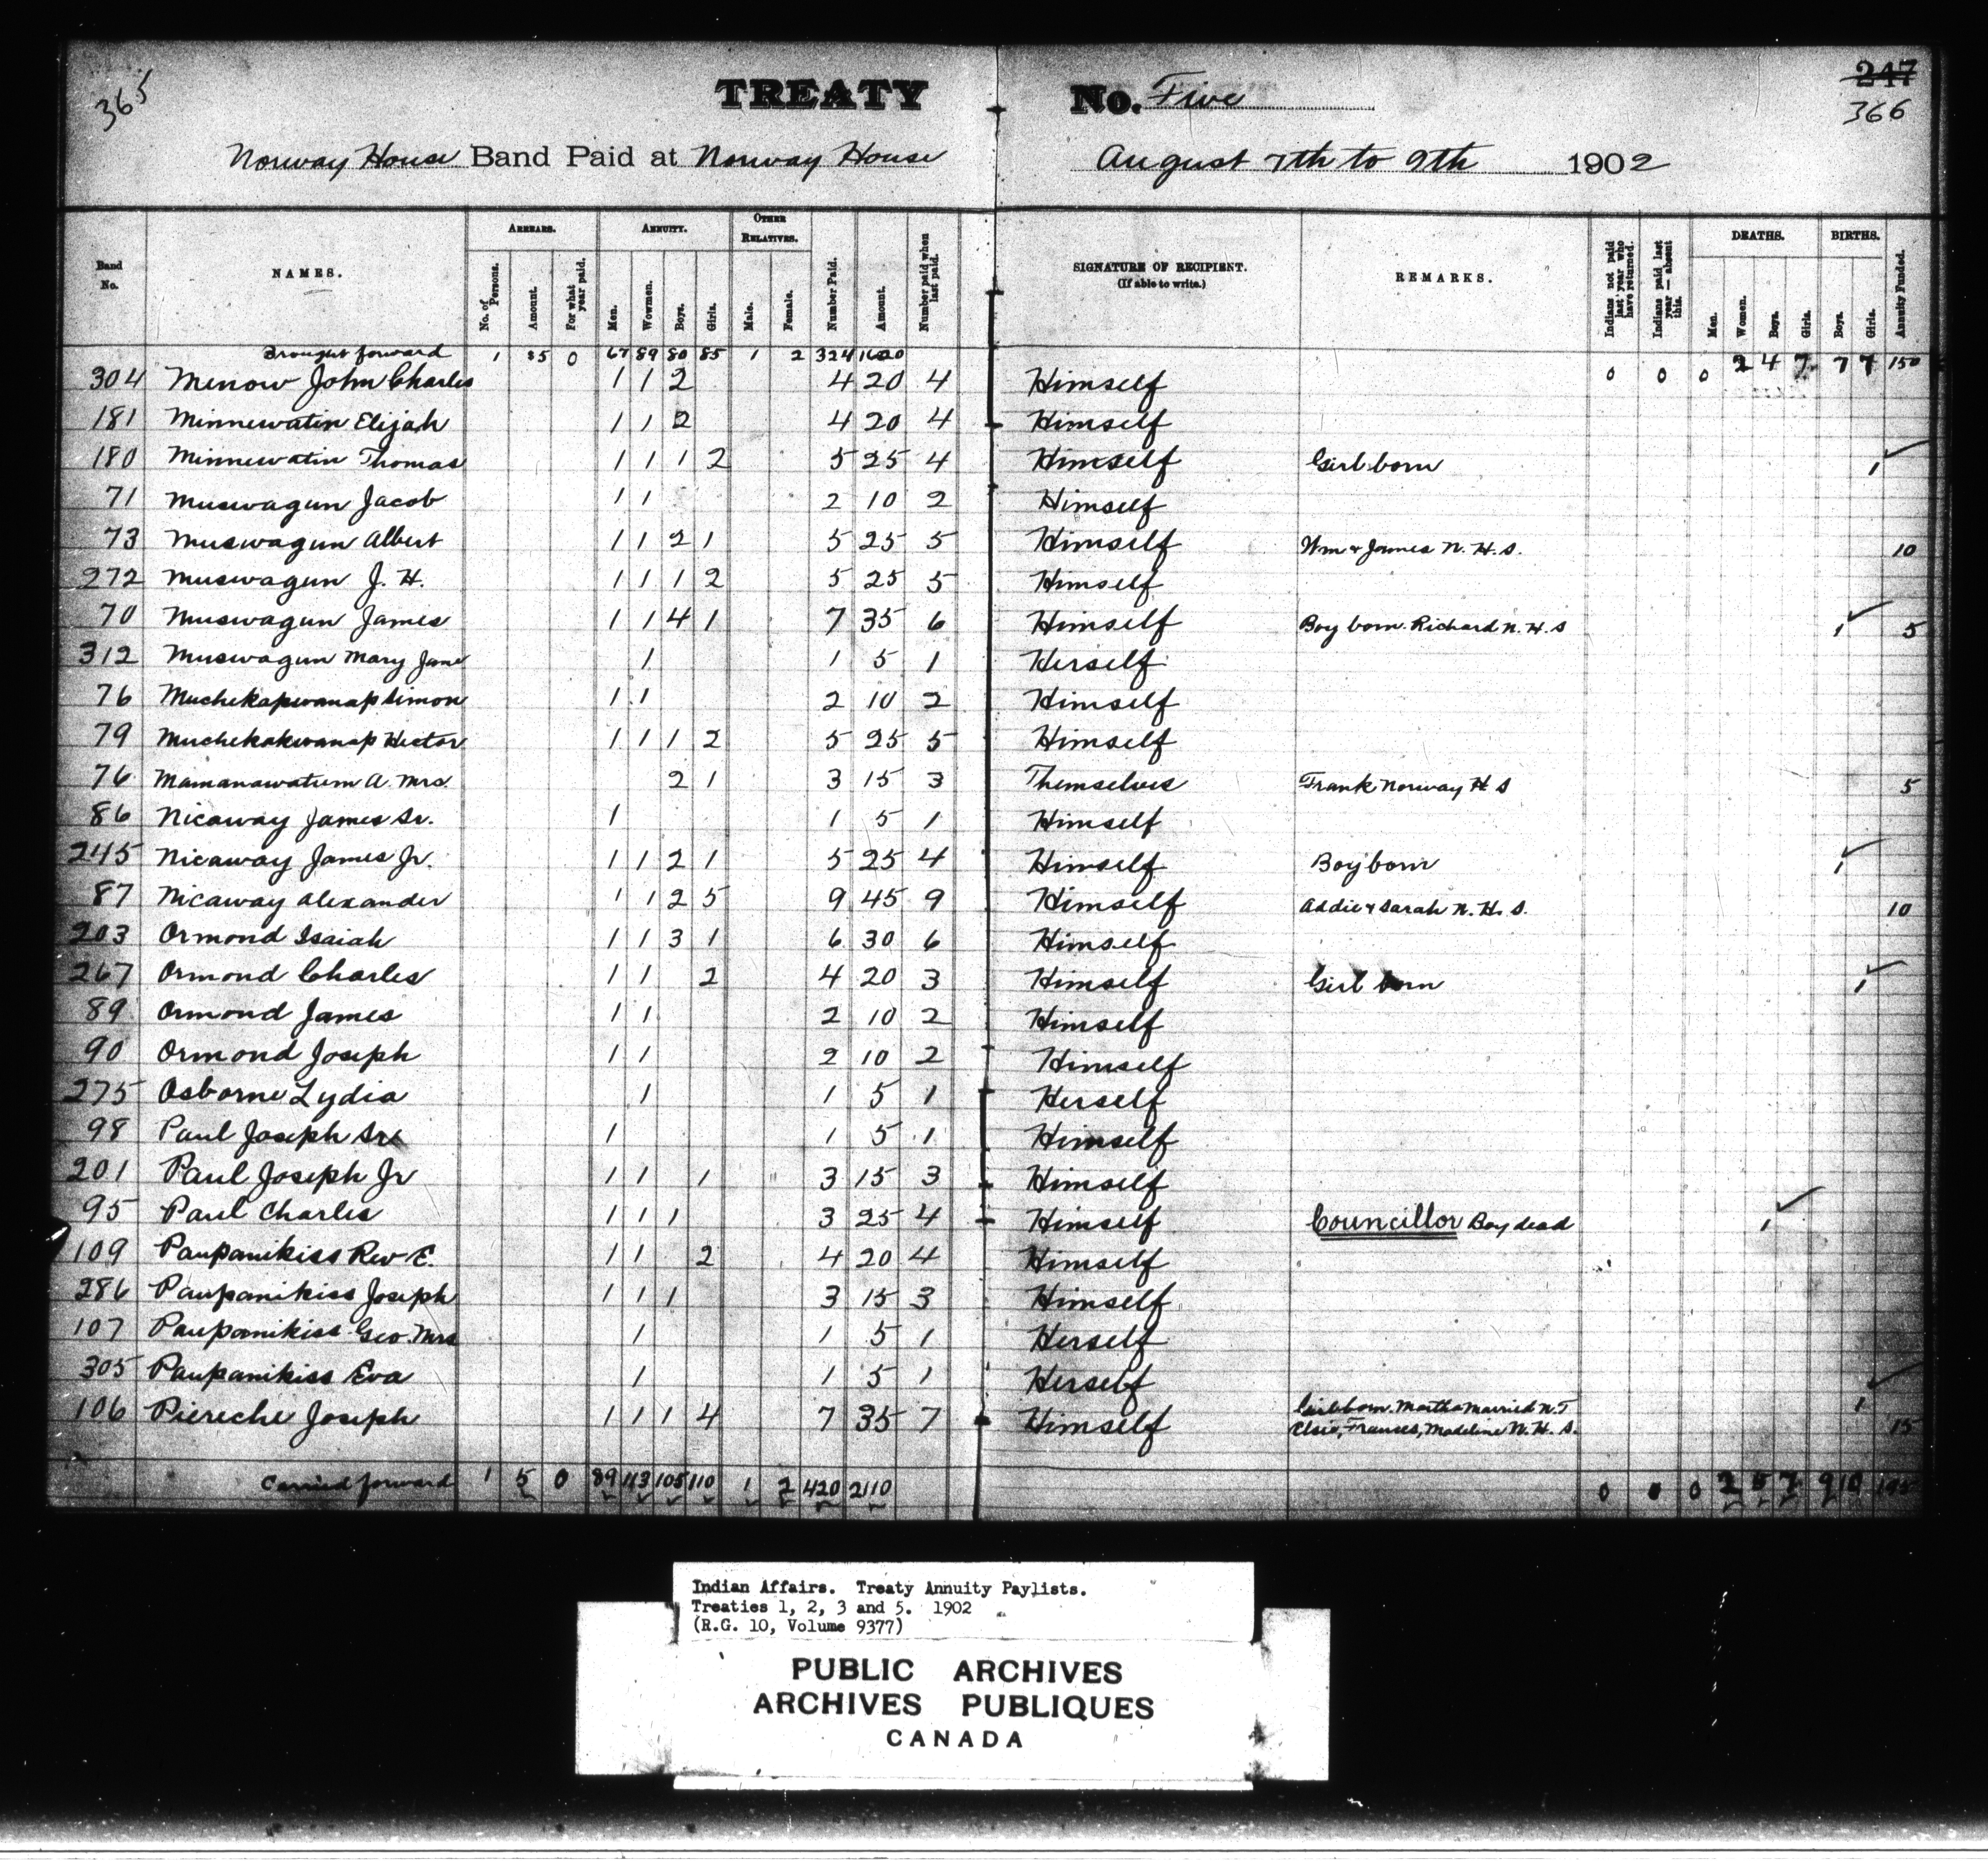 365
TREATY No. Five
247
366
Norway House Band Paid at Norway House August 7th to 9th 1902
Band No. NAMES. ARREARS. No. of Persons. Amount. For what year paid. ANNUITY. Men. Wowmen. Boys. Girls. OTHER RELATIVES. Male. Female. Number Paid. Amount. Number paid when last paid. SIGNATURE OF RECIPIENT. (If able to write.) REMARKS. Indians not paid last year who have returned. Indians paid last year — absent this. DEATHS. Men. Women. Boys. Girls. BIRTHS. Boys. Girls. Annuity Funded.
Brought forward 1 $5 0 67 89 80 85 1 2 324 1620 0 0 0 2 4 7 7 7 150
304 Menow John Charles 1 1 2 4 20 4 Himself
181 Minnewatin Elijah 1 1 2 4 20 4 Himself
180 Minnewatin Thomas 1 1 1 2 5 25 4 Himself Girl born 1
71 Muswagun Jacob 1 1 2 10 2 Himself
73 Muswagun Albert 1 1 2 1 5 25 5 Himself Wm & James N. H. S. 10
272 Muswagun J. H. 1 1 1 2 5 25 5 Himself
70 Muswagun James 1 1 4 1 7 35 6 Himself Boy born. Richard N. H. S 1 5
312 Muswagun Mary Jane 1 1 5 1 Herself
76 Muchekapwanap Simon 1 1 2 10 2 Himself
79 Muchekakwanap Hector 1 1 1 2 5 25 5 Himself
76 Mamanawatum A. Mrs. 2 1 3 15 3 Themselves Frank Norway H S 5
86 Nicaway James Sr. 1 1 5 1 Himself
245 Nicaway James Jr. 1 1 2 1 5 25 4 Himself Boy born 1
87 Nicaway Alexander 1 1 2 5 9 45 9 Himself Addie & Sarah N. H. S. 10
203 Ormond Isaiah 1 1 3 1 6 30 6 Himself
267 Ormond Charles 1 1 2 4 20 3 Himself Girl born 1
89 Ormond James 1 1 2 10 2 Himself
90 Ormond Joseph 1 1 2 10 2 Himself
275 Osborne Lydia 1 1 5 1 Herself
98 Paul Joseph Sr 1 1 5 1 Himself
201 Paul Joseph Jr 1 1 1 3 15 3 Himself
95 Paul Charles 1 1 1 3 25 4 Himself Councillor Boy dead 1
109 Paupanikiss Rev E. 1 1 2 4 20 4 Himself
286 Paupanikiss Joseph 1 1 1 3 15 3 Himself
107 Paupanikiss Geo. Mrs 1 1 5 1 Herself
305 Paupanikiss Eva 1 1 5 1 Herself
106 Piereche Joseph 1 1 1 4 7 35 7 Himself Girl born. Martha Married N. T 1
Elsie, Frances, Madeline N. H. S. 15
Carried forward 1 5 0 89 113 105 110 1 2 420 2110 0 0 0 2 5 7 9 10 195
Indian Affairs. Treaty Annuity Paylists.
Treaties 1, 2, 3 and 5. 1902
(R.G. 10, Volume 9377)
PUBLIC ARCHIVES
ARCHIVES PUBLIQUES
CANADA